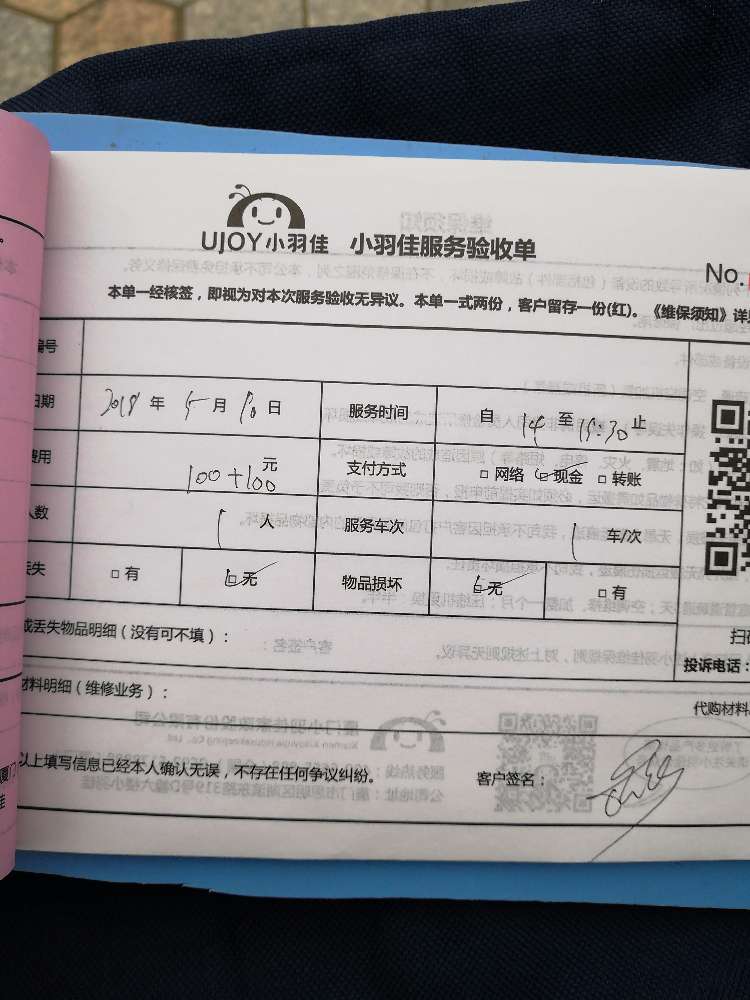 UJOY小羽佳 小羽佳服务验收单
No.
本单一经核签，即视为对本次服务验收无异议。本单一式两份，客户留存一份(红)。《维保须知》详见
编号
日期 2018 年 5 月 10 日 服务时间 自 14 至 15:30 止
费用 100+100 元 支付方式 □网络 ☑现金 □转账
人数 1 人 服务车次 1 车/次
丢失 □有 ☑无 物品损坏 ☑无 □有
或丢失物品明细（没有可不填）： 扫码
投诉电话：
材料明细（维修业务）： 代购材料
以上填写信息已经本人确认无误，不存在任何争议纠纷。 客户签名：